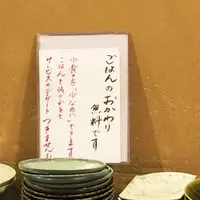 ごはんのおかわり
無料です
少食の方 少なめにできます
ごはんを残されると
サービスのデザート つきません